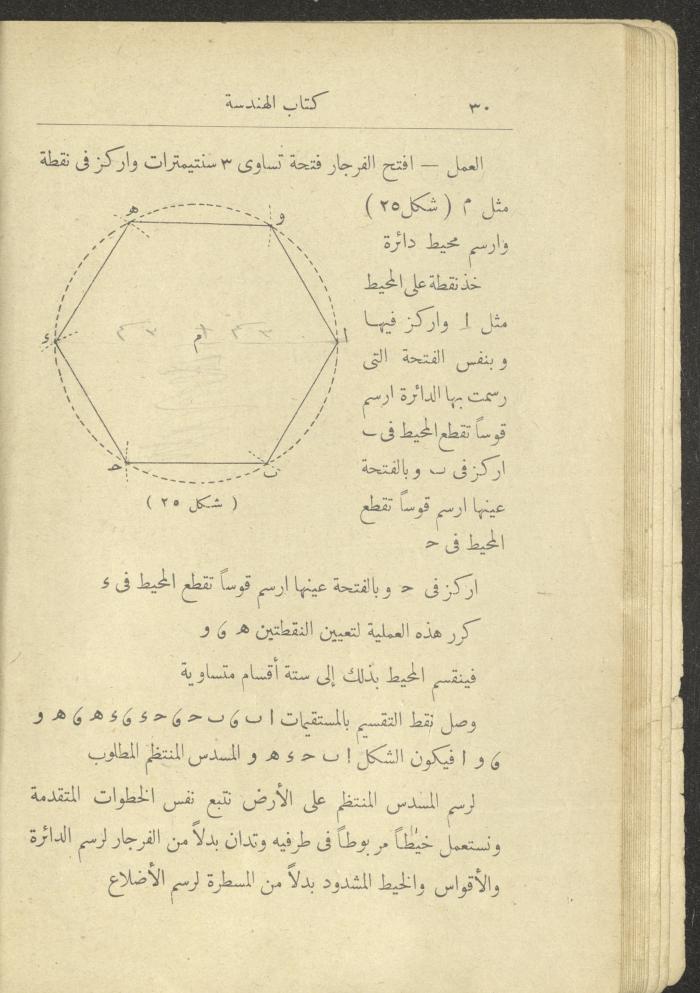 ٣٠
كتاب الهندسة
العمل — افتح الفرجار فتحة تساوى ٣ سنتيمترات واركز فى نقطة
مثل م ( شكل ٢٥ )
وارسم محيط دائرة
خذ نقطة على المحيط
مثل ا واركز فيها
وبنفس الفتحة التى
رسمت بها الدائرة ارسم
قوساً تقطع المحيط فى ب
اركز فى ب وبالفتحة
عينها ارسم قوساً تقطع
المحيط فى ح
و
ه
ا
م
ء
ب
ح
( شكل ٢٥ )
اركز فى ح وبالفتحة عينها ارسم قوساً تقطع المحيط فى ء
كرر هذه العملية لتعيين النقطتين ه ، و
فينقسم المحيط بذلك إلى ستة أقسام متساوية
وصل نقط التقسيم بالمستقيمات ا ب ، ب ح ، ح ء ، ء ه ، ه و
، و ا فيكون الشكل ا ب ح ء ه و المسدس المنتظم المطلوب
لرسم المسدس المنتظم على الأرض نتبع نفس الخطوات المتقدمة
ونستعمل خيطاً مربوطاً فى طرفيه وتدان بدلاً من الفرجار لرسم الدائرة
والأقواس والخيط المشدود بدلاً من المسطرة لرسم الأضلاع